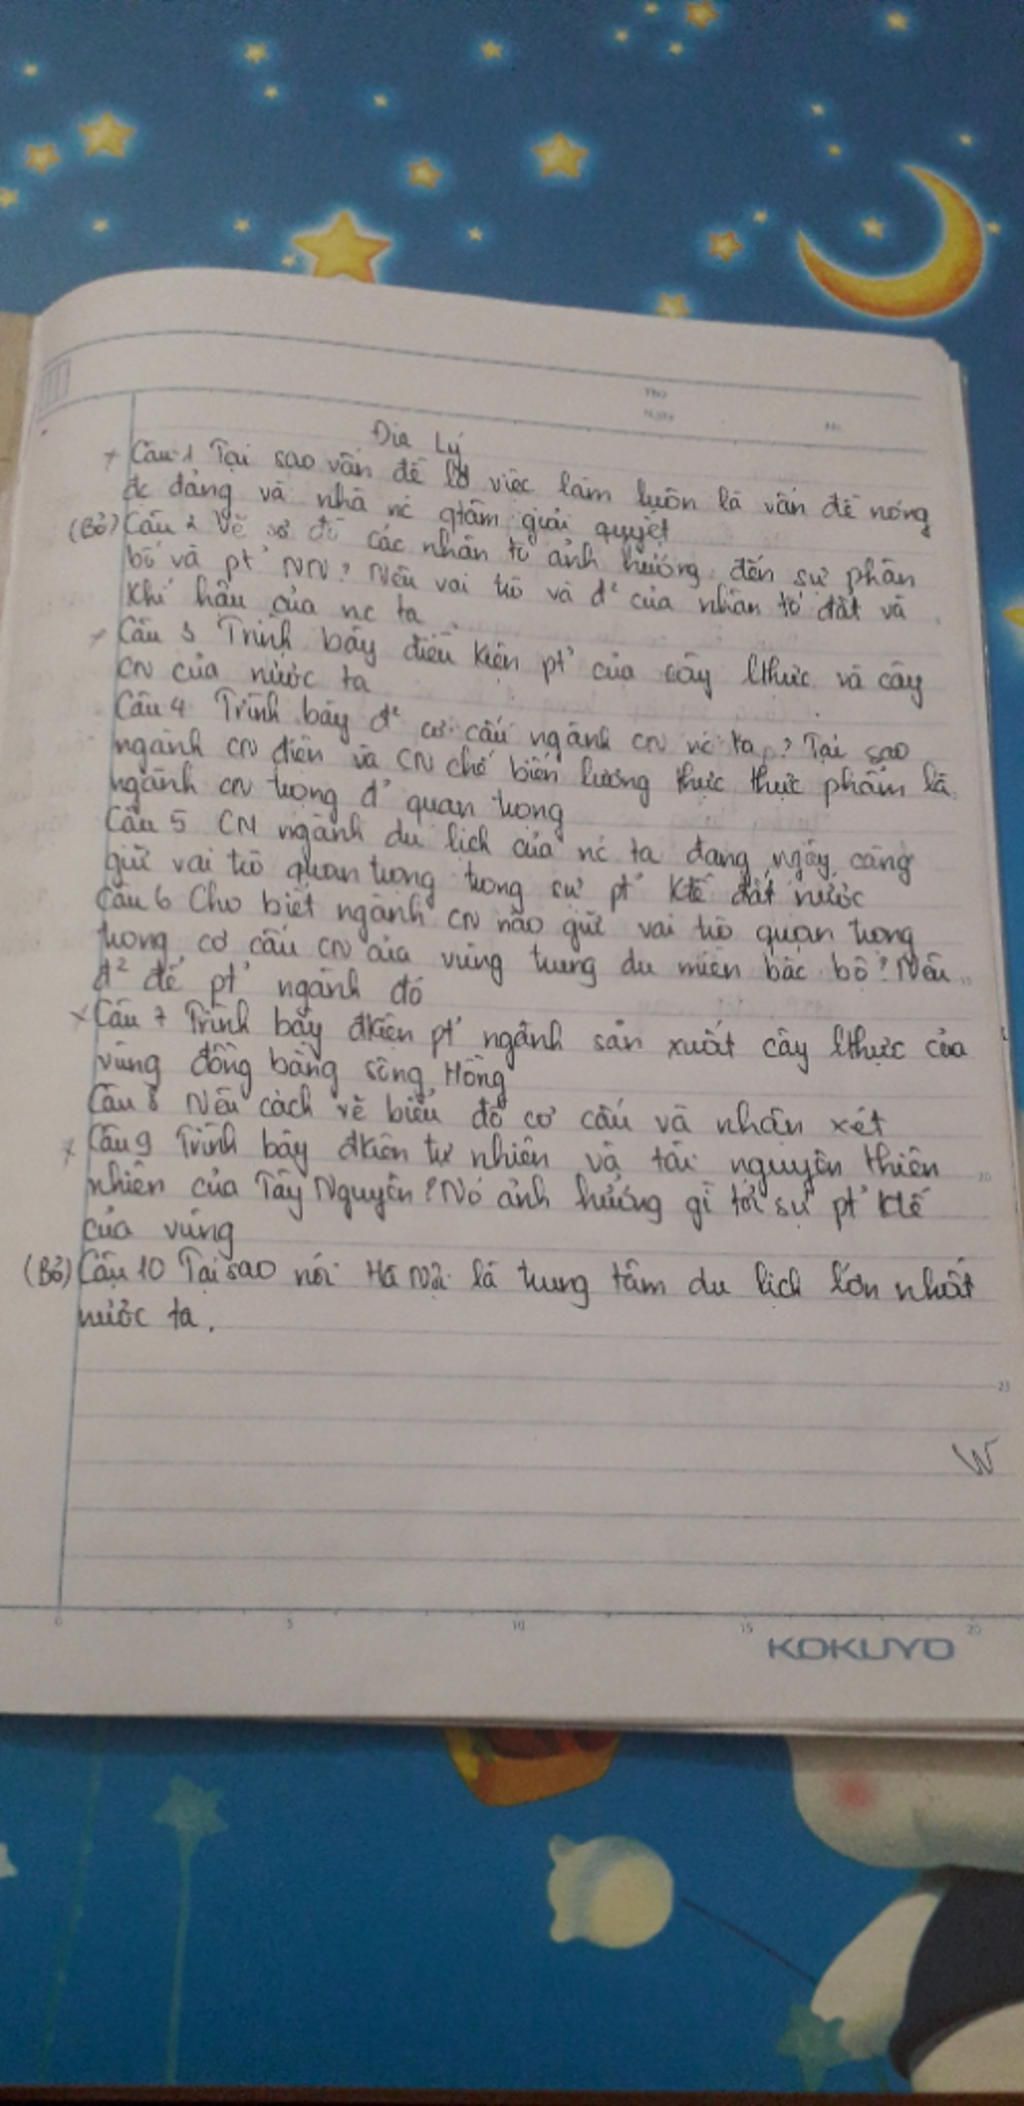 Địa Lý
+ Câu 1 Tại sao vấn đề việc làm luôn là vấn đề nóng
đc đảng và nhà nc qtâm giải quyết
(Bỏ) Câu 2 Vẽ sơ đồ các nhân tố ảnh hưởng đến sự phân
bố và pt' NN? Nêu vai trò và đ² của nhân tố đất và
khí hậu của nc ta
Câu 3 Trình bày điều kiện pt' của cây lthực và cây
CN của nước ta
Câu 4 Trình bày đ² cơ cấu ngành CN nc ta? Tại sao
ngành CN điện và CN chế biến lương thực thực phẩm là
ngành CN trọng đ' quan trọng
Câu 5 CM ngành du lịch của nc ta đang ngày càng
giữ vai trò quan trọng trong sự pt' Ktế đất nước
Câu 6 Cho biết ngành CN nào giữ vai trò quan trọng
trong cơ cấu CN của vùng trung du miền bắc bộ? Nêu
đ² để pt' ngành đó
x Câu 7 Trình bày đkiện pt' ngành sản xuất cây lthực của
vùng đồng bằng sông Hồng
Câu 8 Nêu cách vẽ biểu đồ cơ cấu và nhận xét
x Câu 9 Trình bày đkiện tự nhiên và tài nguyên thiên
nhiên của Tây Nguyên? Nó ảnh hưởng gì tới sự pt' Ktế
của vùng
(Bỏ) Câu 10 Tại sao nói Hà Nội là trung tâm du lịch lớn nhất
nước ta.
W
0 5 10 15 20
KOKUYO